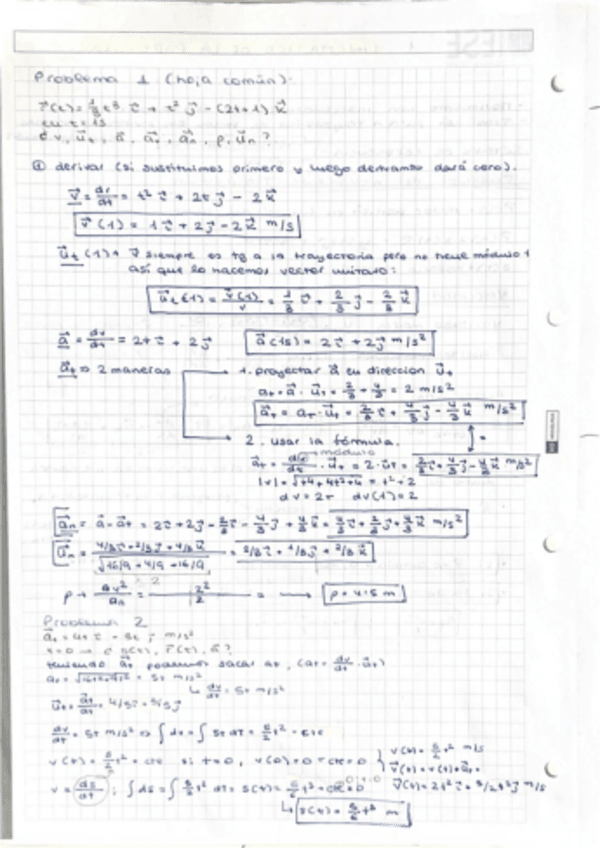 Problema 1 (hoja común).
r⃗(t) = 1/3 t³ i⃗ + t² j⃗ - (2t+1) k⃗
en t = 1s
¿ v, u⃗t, a⃗, a⃗t, a⃗n, ρ, u⃗n ?
① derivar (si sustituimos primero y luego derivamos dará cero).
v⃗ = dr/dt = t² i⃗ + 2t j⃗ - 2 k⃗
v⃗(1) = 1 i⃗ + 2 j⃗ - 2 k⃗ m/s
u⃗t(1) → v⃗ siempre es tg a la trayectoria pero no tiene módulo 1
así que lo hacemos vector unitario:
u⃗t(1) = v⃗(1)/v = 1/3 i⃗ + 2/3 j⃗ - 2/3 k⃗
a⃗ = dv/dt = 2t i⃗ + 2 j⃗ a⃗(1s) = 2 i⃗ + 2 j⃗ m/s²
a⃗t ⇒ 2 maneras
1. proyectar a⃗ en dirección u⃗t
at = a⃗ · u⃗t = 2/3 + 4/3 = 2 m/s²
a⃗t = at · u⃗t = 2/3 i⃗ + 4/3 j⃗ - 4/3 k⃗ m/s²
2. usar la fórmula.
módulo
a⃗t = dv/dt · u⃗t = 2 · u⃗t = 2/3 i⃗ + 4/3 j⃗ - 4/3 k⃗ m/s²
|v| = √t⁴ + 4t² + 4 = t² + 2
dv = 2t dv(1) = 2
a⃗n = a⃗ - a⃗t = 2 i⃗ + 2 j⃗ - 2/3 i⃗ - 4/3 j⃗ + 4/3 k⃗ = 4/3 i⃗ + 2/3 j⃗ + 4/3 k⃗ m/s²
u⃗n = 4/3 i⃗ + 2/3 j⃗ + 4/3 k⃗ / √16/9 + 4/9 + 16/9 = 2/3 i⃗ + 1/3 j⃗ + 2/3 k⃗
ρ = 4.5 m
Problema 2
a⃗t = 4t i⃗ - 3t j⃗ m/s²
t = 0 → ¿ s(t), r⃗(t), a⃗ ?
teniendo a⃗t podemos sacar at, (at = dv/dt · u⃗t)
= 5t m/s²
↳ dv/dt = 5t m/s²
u⃗t = a⃗t/at = 4/5 i⃗ - 3/5 j⃗
dv/dt = 5t m/s² ⇒ ∫ dv = ∫ 5t dt = 5/2 t² + cte
v(t) = 5/2 t² + cte si t = 0, v(0) = 0 → cte = 0
v(t) = 5/2 t² m/s
v⃗(t) = v(t) · u⃗t =
v⃗(t) = 2t² i⃗ - 3/2 t² j⃗ m/s
v = ds/dt ; ∫ ds = ∫ 5/2 t² dt = s(t) = 5/6 t³ + cte
↳ s(t) = 5/6 t³ m